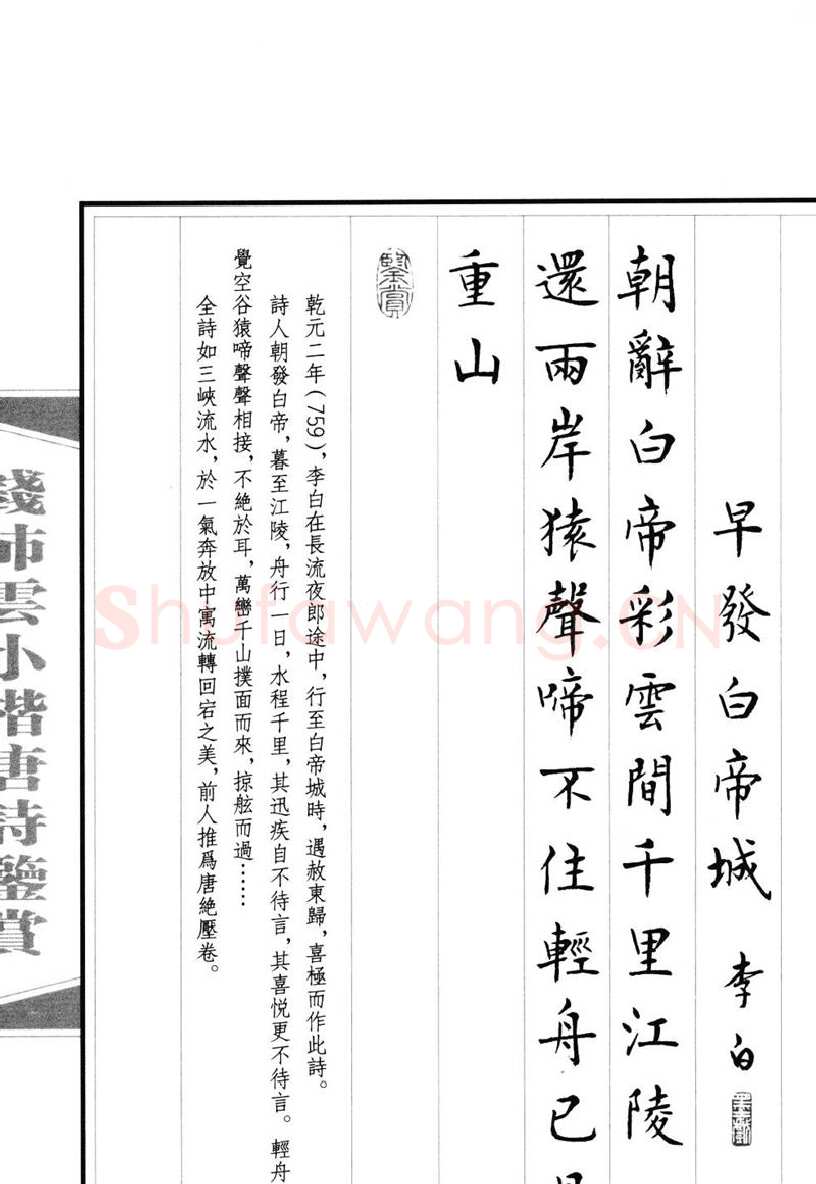 早發白帝城 李白
朝辭白帝彩雲間千里江陵
還兩岸猿聲啼不住輕舟已
重山
鑒賞
乾元二年(759),李白在長流夜郎途中,行至白帝城時,遇赦東歸,喜極而作此詩。
詩人朝發白帝,暮至江陵,舟行一日,水程千里,其迅疾自不待言,其喜悅更不待言。輕舟
覺空谷猿啼聲聲相接,不絕於耳,萬巒千山撲面而來,掠舷而過……
全詩如三峽流水,於一氣奔放中寓流轉回宕之美,前人推爲唐絕壓卷。
錢沛雲小楷唐詩鑒賞
Shufawang.CN